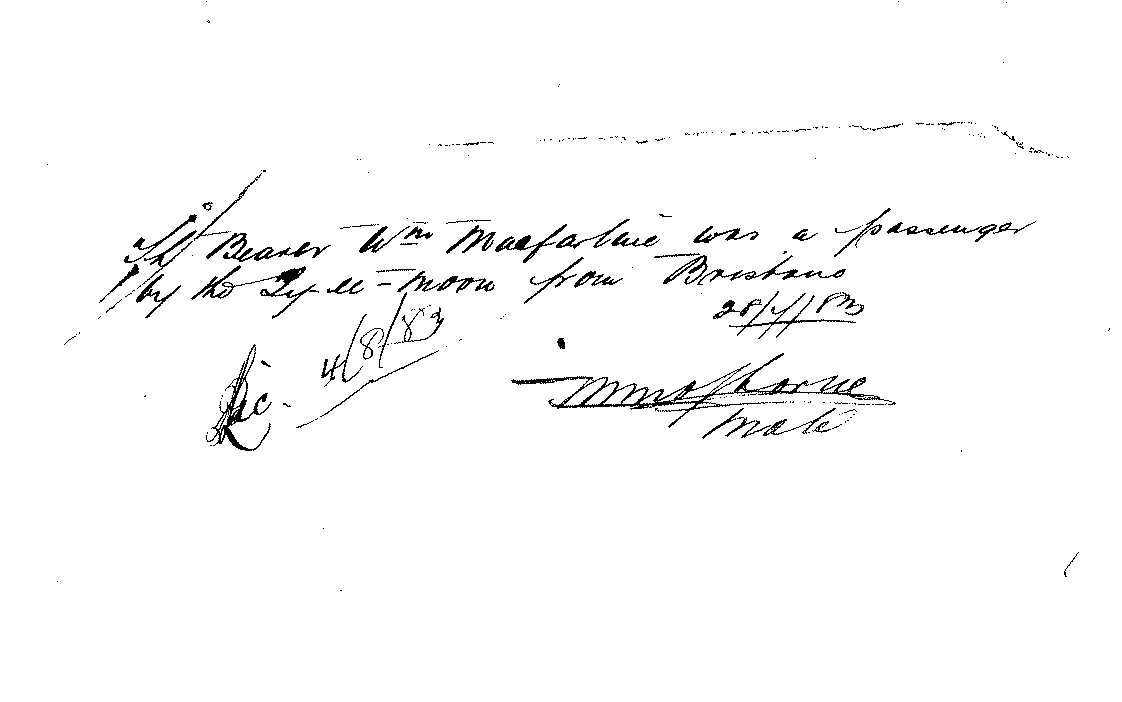 The Bearer Wm Macfarlane was a passenger
by the Ly-ee-moon from Brisbane
28/7/83
4/8/83
Osborne
Mate